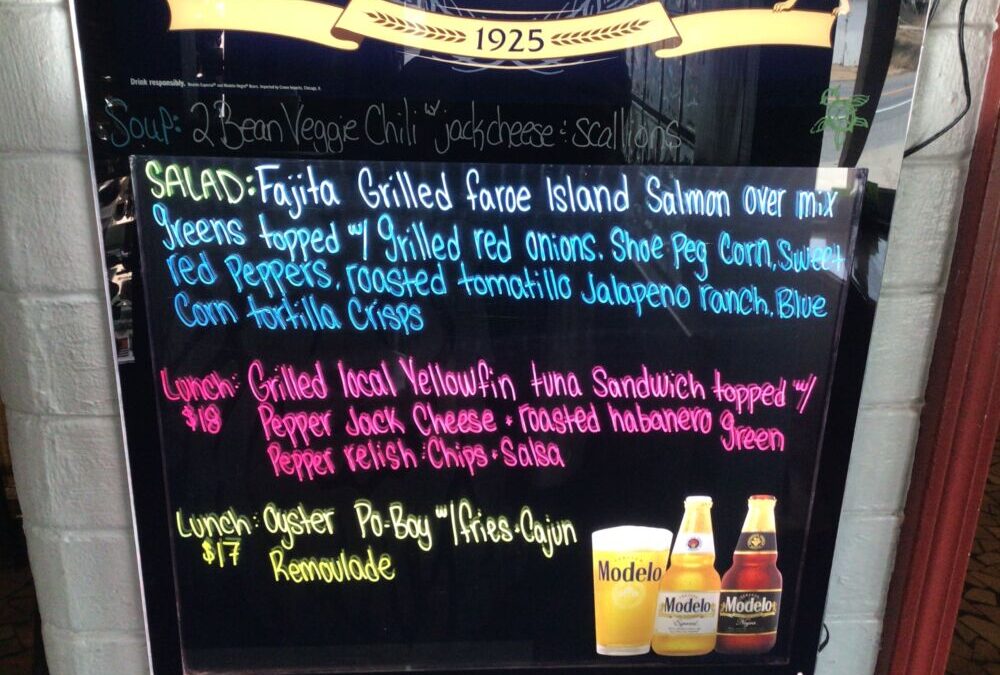 1925
Drink responsibly. Modelo Especial® and Modelo Negra® Beers. Imported by Crown Imports, Chicago, IL
Soup: 2 Bean Veggie Chili w/ jack cheese + scallions
SALAD: Fajita Grilled faroe Island Salmon over mix
greens topped w/ grilled red onions, Shoe Peg Corn, Sweet
red Peppers, roasted tomatillo Jalapeno ranch, Blue
Corn tortilla Crisps
Lunch: Grilled local Yellowfin tuna Sandwich topped w/
$18 Pepper Jack Cheese + roasted habanero green
Pepper relish + Chips + Salsa
Lunch: Oyster Po-Boy w/ fries + Cajun
$17 Remoulade
Modelo
Modelo
Especial
Modelo
Negra